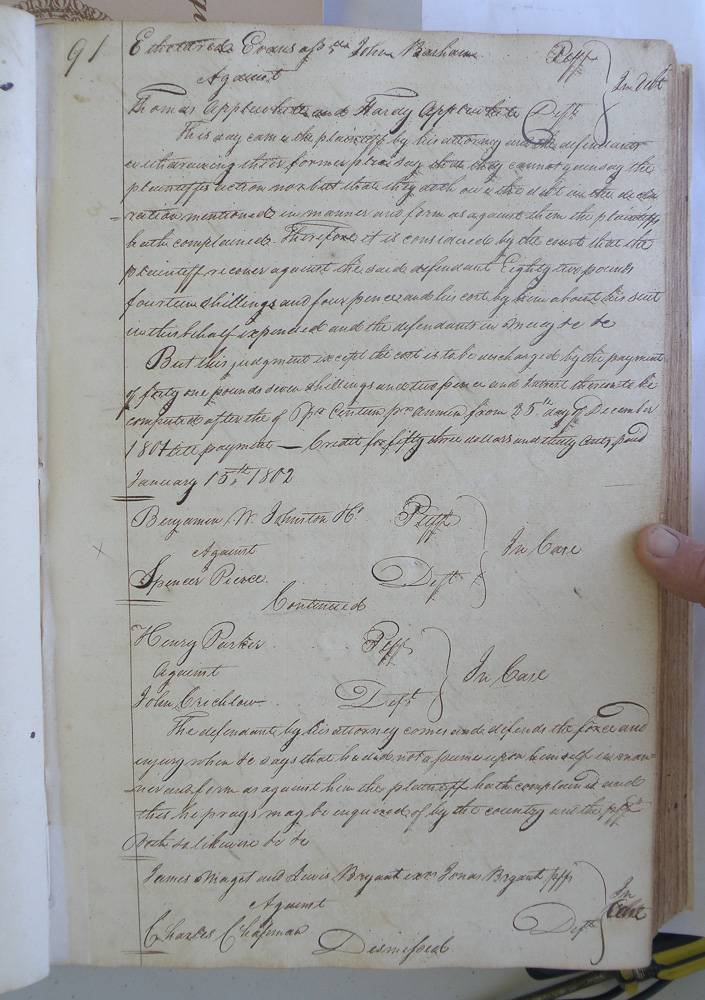 91
Etheldred Evans assee John Barham Pltff
Against In Debt
Thomas Applewhite and Hardy Applewhite Defts
This day came the plaintiff by his attorney and the defendants
withdrawing their former plea say that they cannot gainsay the
plaintiffs action nor but that they doth owe the debt in the decla
-ration mentioned in manner and form as against them the plaintiff
hath complained. Therefore it is considered by the court that the
plaintiff recover against the said defendant Eighty two pounds
fourteen shillings and four pence and his cost by him about his suit
in this behalf expended and the defendants in mercy &c &c
But this judgment except the cost is to be discharged by the payment
of forty one pounds seven shillings and two pence and Interest thereon to be
computed after the of pr Centum pr annum from 25th day of December
1801 till payment — Credit for fifty three dollars and thirty cents paid
January 15th 1802
Benjamin W. Johnston Pltff
Against In Case
Spencer Pierce Deft
Continued
Henry Parker Pltff
Against In Case
John Crichlow Deft
The defendant by his attorney comes and defends the force and
injury when &c says that he did not assume upon himself in man-
-ner and form as against him the plaintiff hath complained and
this he prays may be enquired of by the country and the pltff
doth so likewise &c &c
James Maget and Lewis Bryant exrs Jonas Bryant pltffs
Against In Case
Charles Chapman Deft
Dismissed